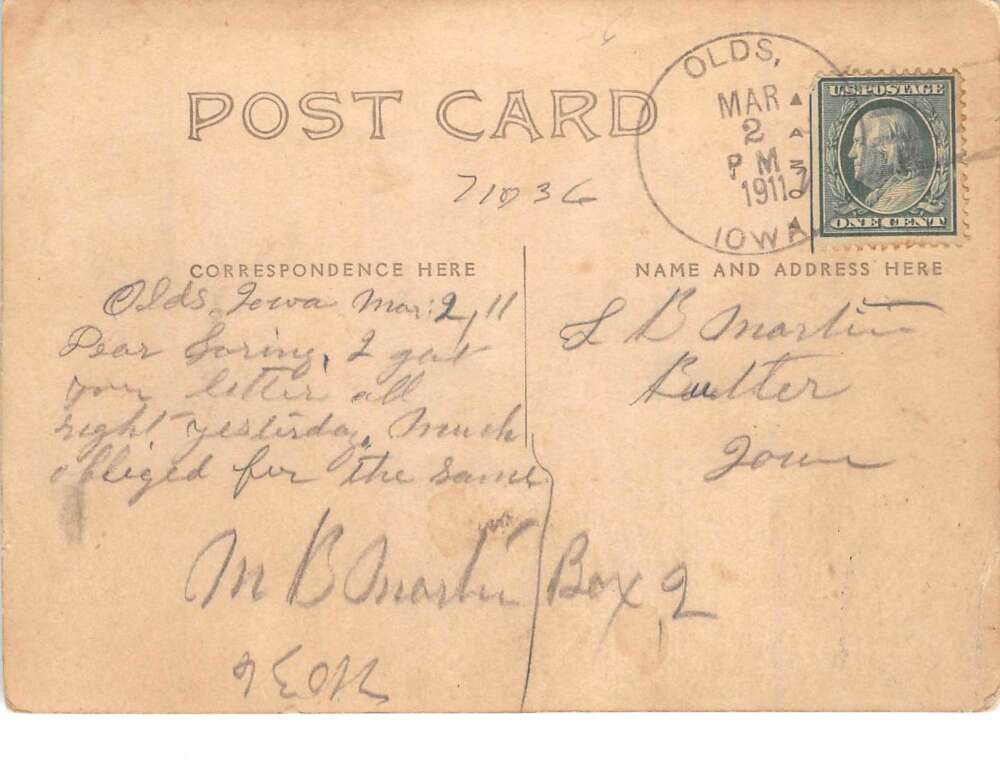 POST CARD
OLDS,
MAR
2
P M
1911
IOWA
U.S. POSTAGE
ONE CENT
71036
CORRESPONDENCE HERE
NAME AND ADDRESS HERE
Olds, Iowa Mar. 2, 11
Dear Loring, I got
your letter all
right yesterday. Much
obliged for the same
M B Martin Box 2
L B Martin
Butter
Iowa